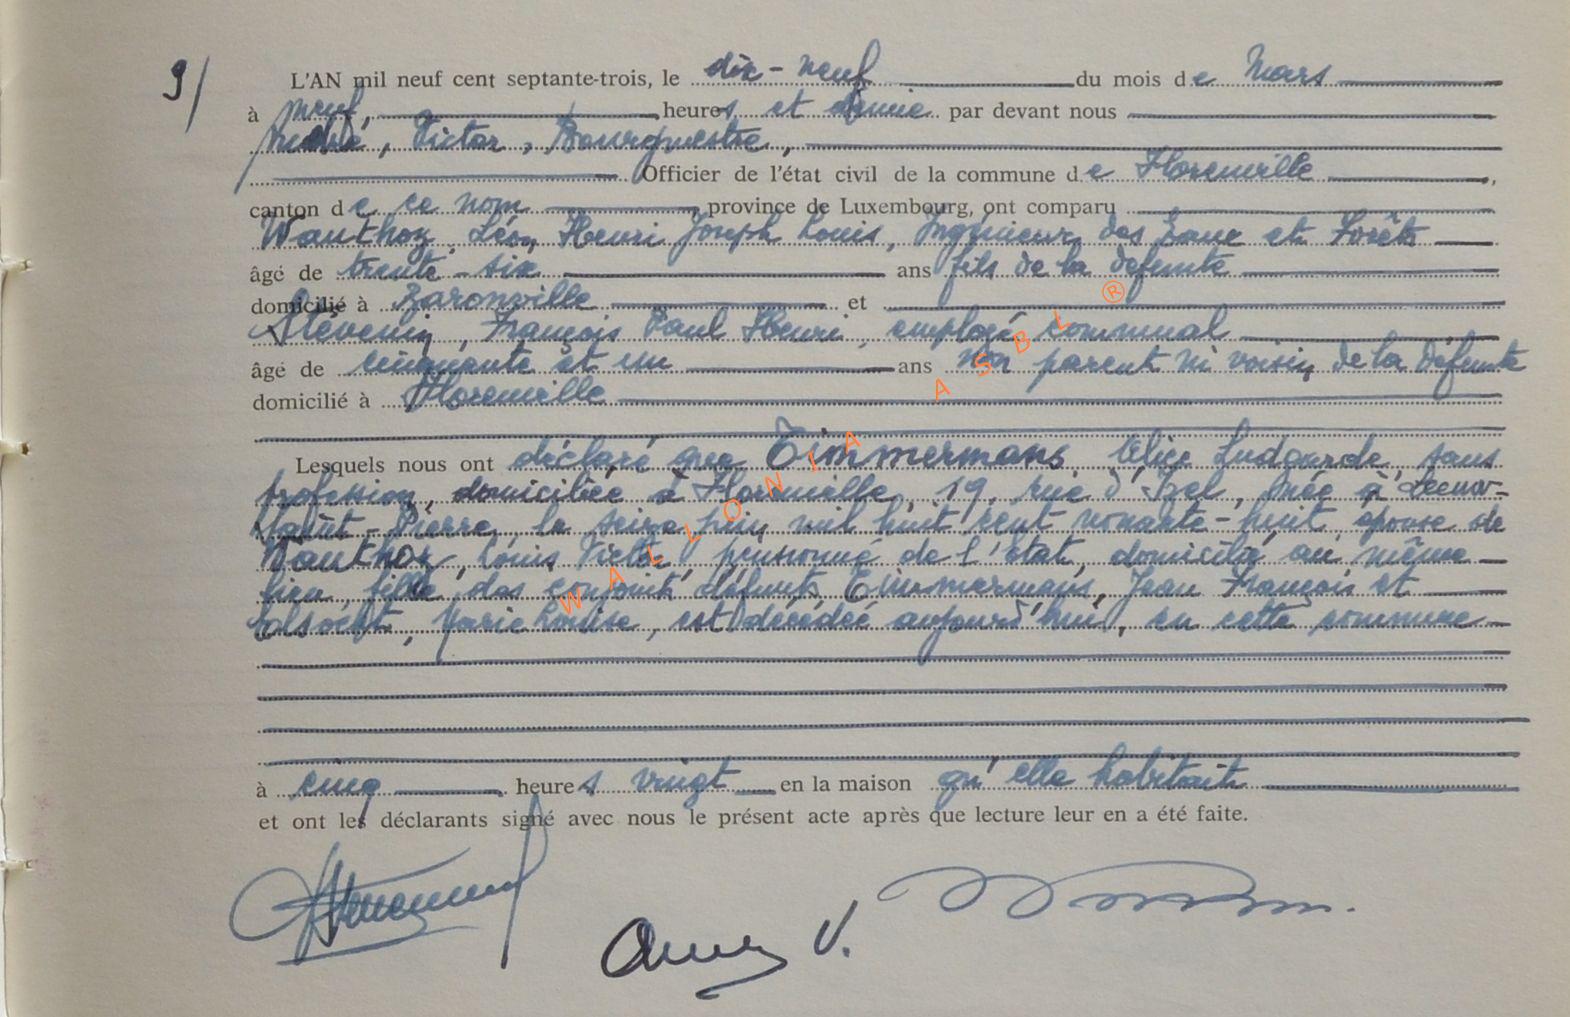 9/
L'AN mil neuf cent septante-trois, le dix-neuf du mois de Mars
à neuf, heures et demie par devant nous
Victor, Bourgmestre,
Officier de l'état civil de la commune de Florenville,
canton de ce nom, province de Luxembourg, ont comparu
Wauthoz, Léon Henri Joseph Louis, Ingénieur des Eaux et Forêts
âgé de trente-six ans fils de la défunte
domicilié à Baronville et
Stévenin, François Paul Henri, employé communal
âgé de cinquante et un ans non parent ni voisin de la défunte
domicilié à Florenville
Lesquels nous ont déclaré que Timmermans, Alice Ludgarde, sans
profession, domiciliée à Florenville, 19, rue d'Izel, née à Leeuw-
Saint-Pierre, le seize juin mil huit cent nonante-huit, épouse de
Wauthoz, Louis Victor, pensionné de l'Etat, domicilié au même
lieu, fille des conjoints défunts Timmermans, Jean François et
Marie Louise, est décédée aujourd'hui, en cette commune
à cinq heures vingt en la maison qu'elle habitait
et ont les déclarants signé avec nous le présent acte après que lecture leur en a été faite.
V.
WALLONIA ASBL ®